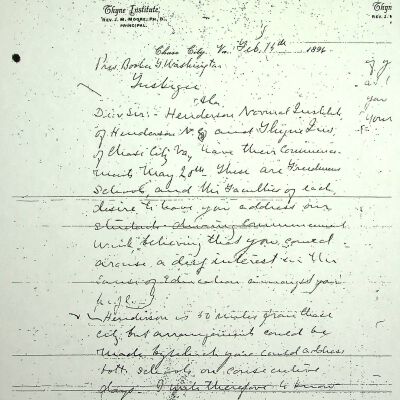 Thyne Institute,
REV. J. M. MOORE, PH. D.,
PRINCIPAL.
Thyne
REV. J. M
Chase City, Va. Feb. 14th 1896
Pres. Booker T. Washington
Tuskegee
Ala.
Dear Sir:- Henderson Normal Institute
of Henderson N.C. and Thyne Inst.
of Chase City Va, have their Commence-
ments May 20th. These are Freedmens
Schools, and the Faculties of each,
desire to have you address our
students during Commencement
week, believing that you could
arouse a deep interest in the
cause of Education amongst your
people.
Henderson is 50 miles from Chase
City, but arrangements could be
made by which you could address
both schools on consecutive
days. I write therefore to know
you
your